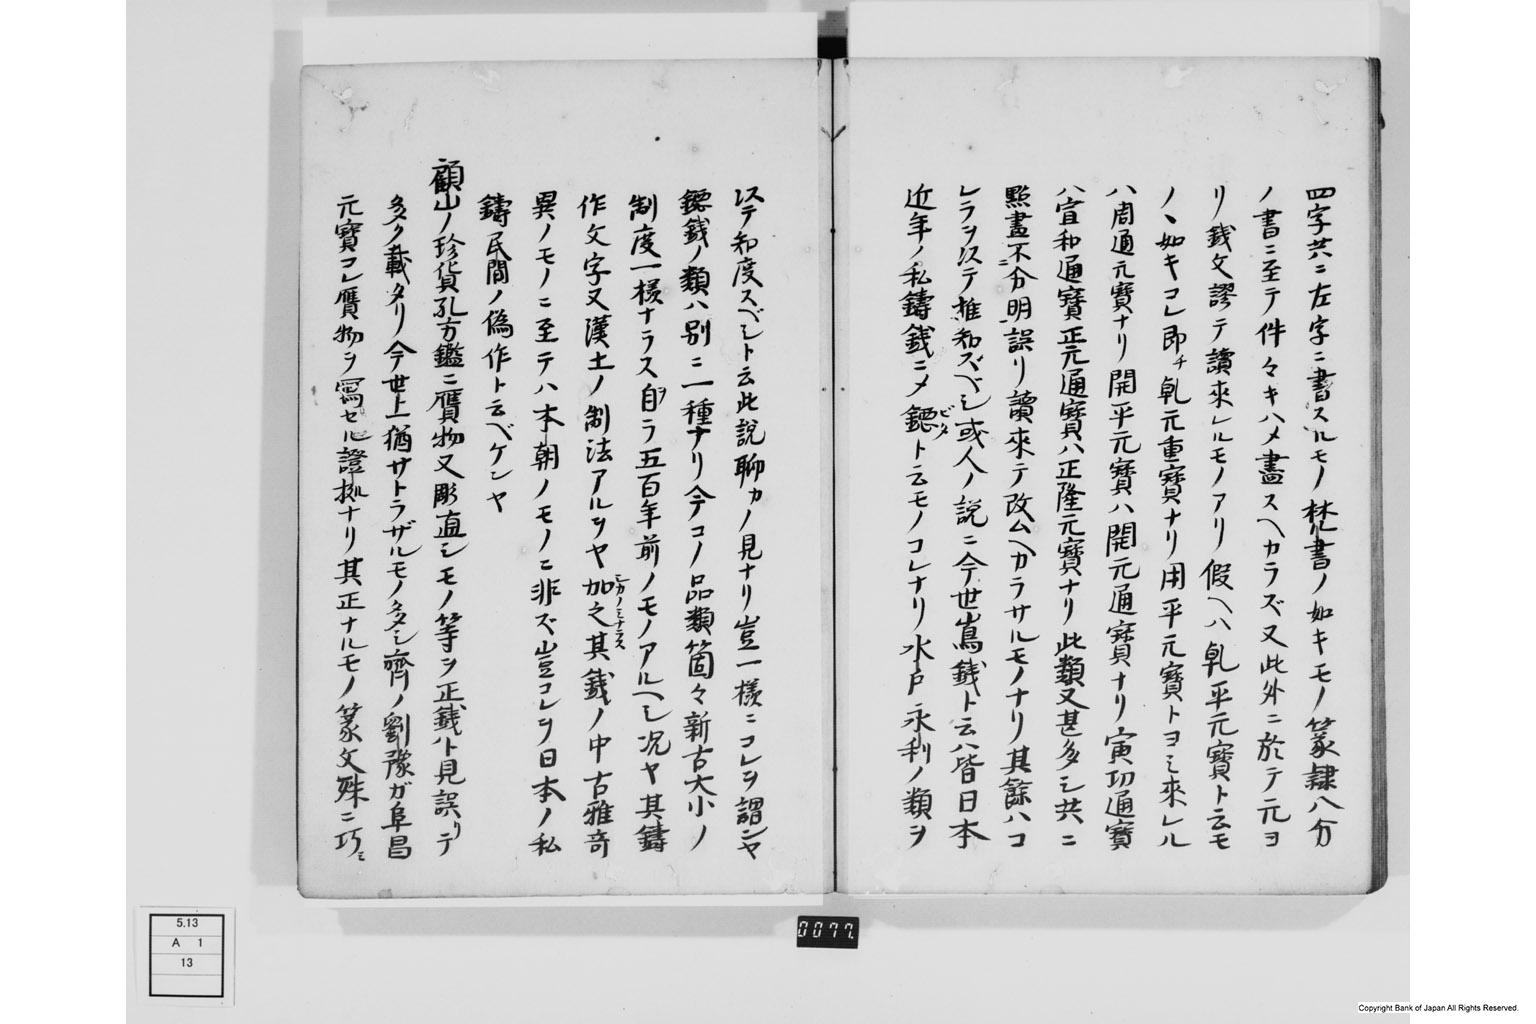 四字共ニ左字ニ書スルモノ梵書ノ如キモノ篆隷八分
ノ書ニ至テ件々キハメ盡スヘカラズ又此外ニ於テ元ヨ
リ銭文謬テ讀来レルモノアリ假ヘハ乹平元寳ト云モ
ノヽ如キコレ即チ乹元重寳ナリ用平元寳トヨミ来レル
ハ周通元寳ナリ開平元寳ハ開元通寳ナリ寅功通寳
ハ宣和通寳正元通寳ハ正隆元寳ナリ此類又甚多シ共ニ
點畫不分明ニ誤リ讀来テ改ムヘカラサルモノナリ其餘ハコ
レラヲ以テ推知スベシ或人ノ説ニ今世嶌銭ト云ハ皆日本
近年ノ私鑄銭ニメ鐚ビタト云モノコレナリ水戸永利ノ類ヲ
以テ知度スベシト云此説聊カノ見ナリ豈一様ニコレヲ謂ンヤ
鐚銭ノ類ハ別ニ一種ナリ今コノ品類箇々新古大小ノ
制度一様ナラス自ヲラ五百年前ノモノアルヘシ况ヤ其鑄
作文字又漢土ノ制法アルヲヤ加之シカノミナラス其銭ノ中古雅奇
異ノモノニ至テハ本朝ノモノニ非ズ豈コレヲ日本ノ私
鑄民間ノ偽作ト云ベケンヤ
顧山ノ珍貨孔方鑑ニ贋物又彫直シモノ等ヲ正銭ト見誤リテ
多ク載タリ今世上猶サトラザルモノ多シ齊ノ劉豫ガ阜昌
元寳コレ贋物ヲ寫セル證拠ナリ其正ナルモノ篆文殊ニ巧ミ
5.13
A 1
13
0077.
Copyright Bank of Japan All Rights Reserved.